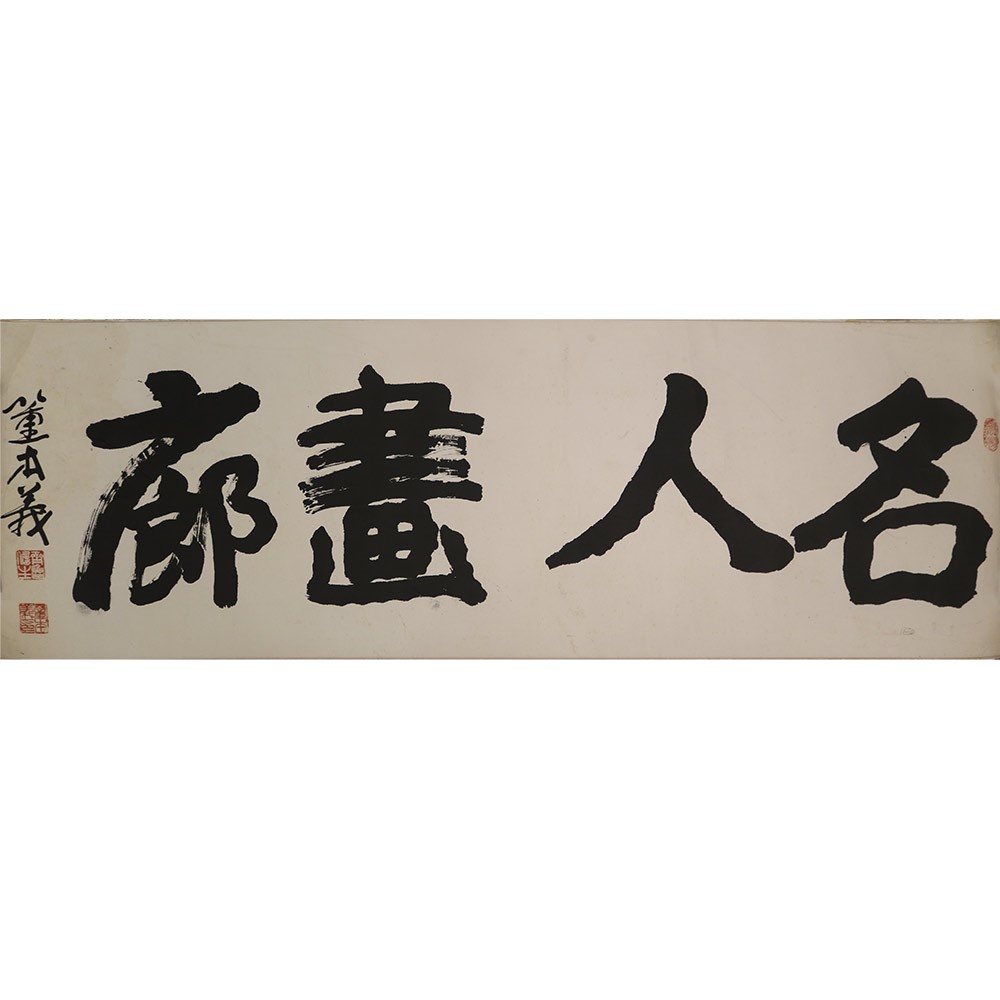 名人畫廊
董本義